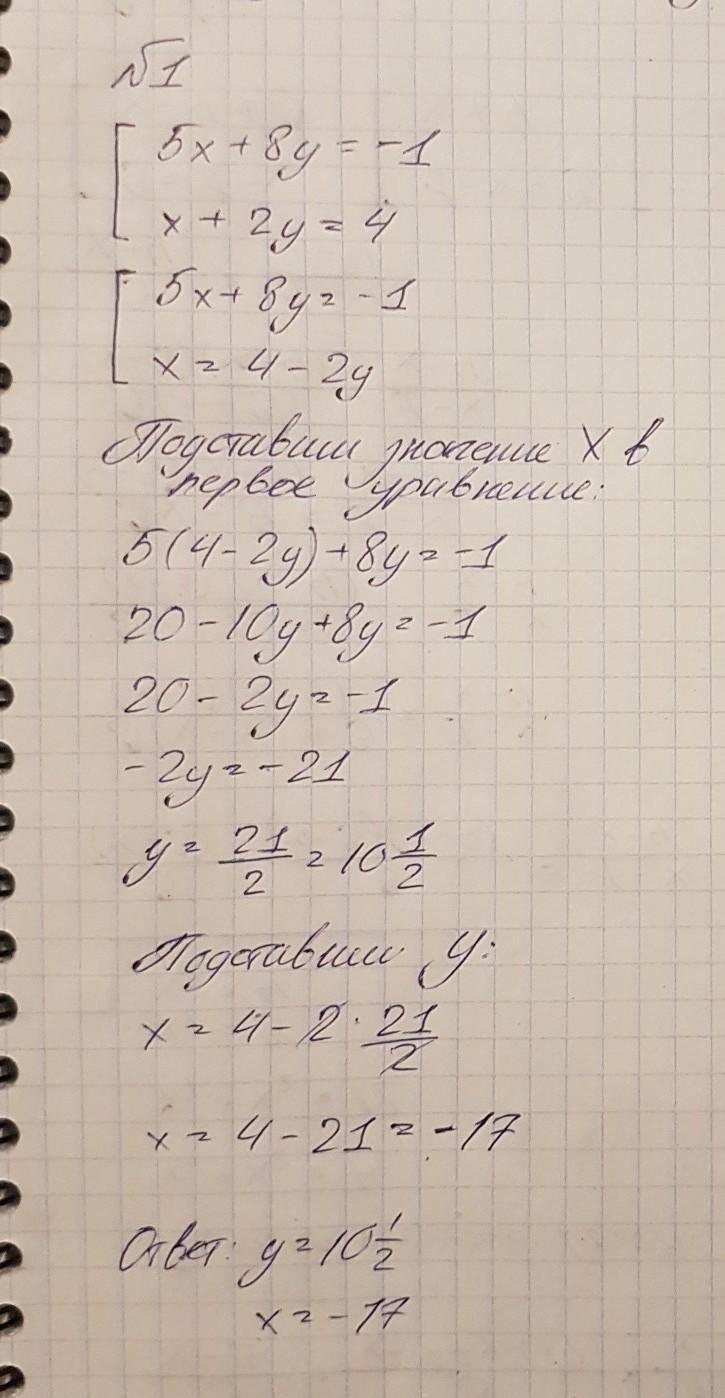 №1
5x + 8y = -1
x + 2y = 4
5x + 8y = -1
x = 4 - 2y
Подставим значение X в
первое уравнение:
5(4 - 2y) + 8y = -1
20 - 10y + 8y = -1
20 - 2y = -1
-2y = -21
y = 21/2 = 10 1/2
Подставим y:
x = 4 - 2 · 21/2
x = 4 - 21 = -17
Ответ: y = 10 1/2
x = -17